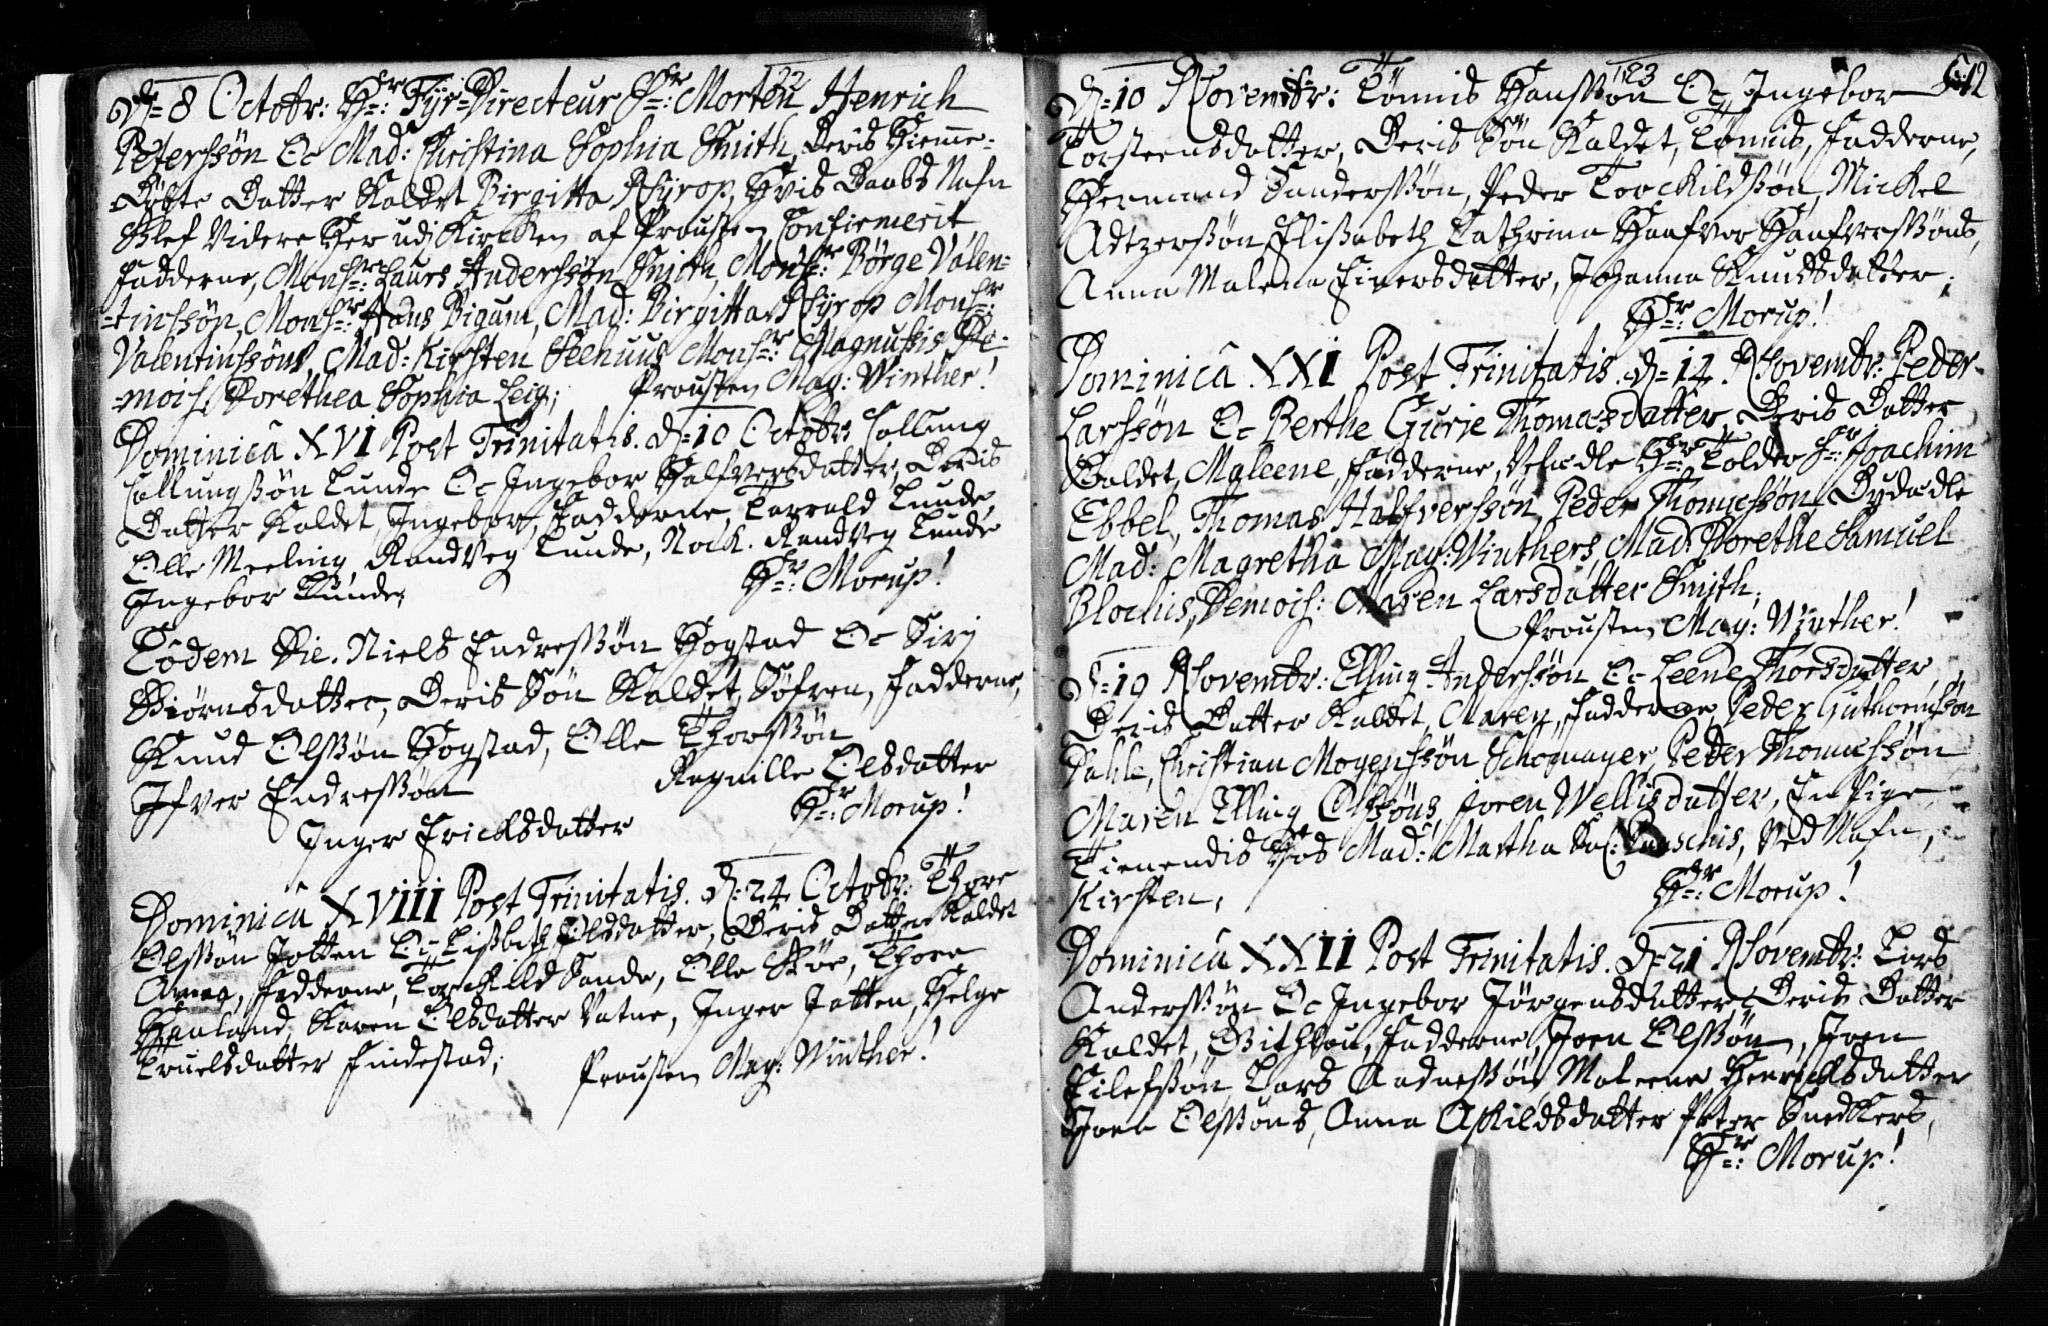 22
D: 8 Octobr: Hr: Fyr-Directeur Sr: Morten Henrich
Peterssøn Oc Mad: Christina Sophia Smith, Deris Hiemme-
Døbte Datter Kaldet Birgitta Nyrop, Hvis Daabs Nafn
Blef Videre Her udj Kircken af Prousten Confiemerit,
Fadderne, Monsr: Laurs Anderssøn Smith, Monsr: Børge Valen-
-tinssøn, Monsr: Hans Bigum, Mad: Birgitta Nyrop Monsr:
Valentinssøns, Mad: Kirsten Seehuus Monsr: Magnussis De-
-mois: Dorethea Sophia Leig; Prousten Mag: Winther!
Dominica XVI Post Trinitatis. D: 10 Octobr: Callung
Callungssøn Lunde Oc Ingebor Halfversdatter, Deris
Datter Kaldet, Ingebor, Fadderne, Torrald Lunde,
Olle Meeling, Randveg Lunde, Nock. Randveg Lunde
Ingebor Lunde; Hr: Morup!
Eodem Die. Niels Endressøn Hogstad Oc Sirj
Biørnsdatter, Deris Søn Kaldet, Søfren, Fadderne,
Knud Olssøn Hogstad, Olle Thorssøn
Ifver Endressøn Ragnille Olsdatter
Inger Ericksdatter Hr: Morup!
Dominica XVIII Post Trinitatis. D: 24 Octobr: Thore
Olssøn Jotten Oc Lisbeth Olsdatter, Deris Datter Kaldet
Fadderne, Torckild Sande, Olle Thore
Haaland, Karen Olsdatter Vatne, Inger Jatten, Helge
Truelsdatter Findestad; Prousten Mag: Winther!
123
D: 10 Novembr: Tønnis Hanssøn Oc Ingebor
Torsteensdatter, Deris Søn Kaldet, Tønnis, Fadderne,
Hermand Sanderssøn, Peder Torckildssøn, Mickel
Adtzerssøn Elisabeth Cathrina Haafvor Haafverssøns,
Anna Malena Eiversdatter, Johanna Knudsdatter;
Hr: Morup!
Dominica XXI Post Trinitatis. D: 14 Novembr: Peder
Larssøn Oc Berthe Gurie Thomæsdatter, Deris Datter
Kaldet, Maleene, Fadderne, Velædle Hr: Tolder Sr: Joachim
Ebbel, Thomas Halfverssøn, Peder Thomæssøn Dydædle
Mad: Magretha Mag: Winthers, Mad: Dorethe Samuel
Blochis, Demois: Maren Larsdatter Smith;
Prousten Mag: Winther!
D: 19 Novembr: Elling Anderssøn Oc Leene Thorsdatter,
Deris Datter Kaldet, Maren, Fadderne, Peder Guthormssøn
Dahle, Christian Mogenssøn Schomager, Peder Thomæssøn
Maren Elling Olssøns, Joren Wellisdatter, En Pige
Tienendis Hos Mad: Martha Sal: Ved Nafn,
Kirsten, Hr: Morup!
Dominica XXII Post Trinitatis. D: 21 Novembr: Lars
Anderssøn Oc Ingebor Jørgensdatter, Deris Datter
Kaldet, Fadderne, Joen Olssøn, Joen
Eilefssøn, Lars Aadnessøn, Maleene Henricksdatter
Joen Olssøns, Anna Askildsdatter Peter Snedkers,
Hr: Morup!